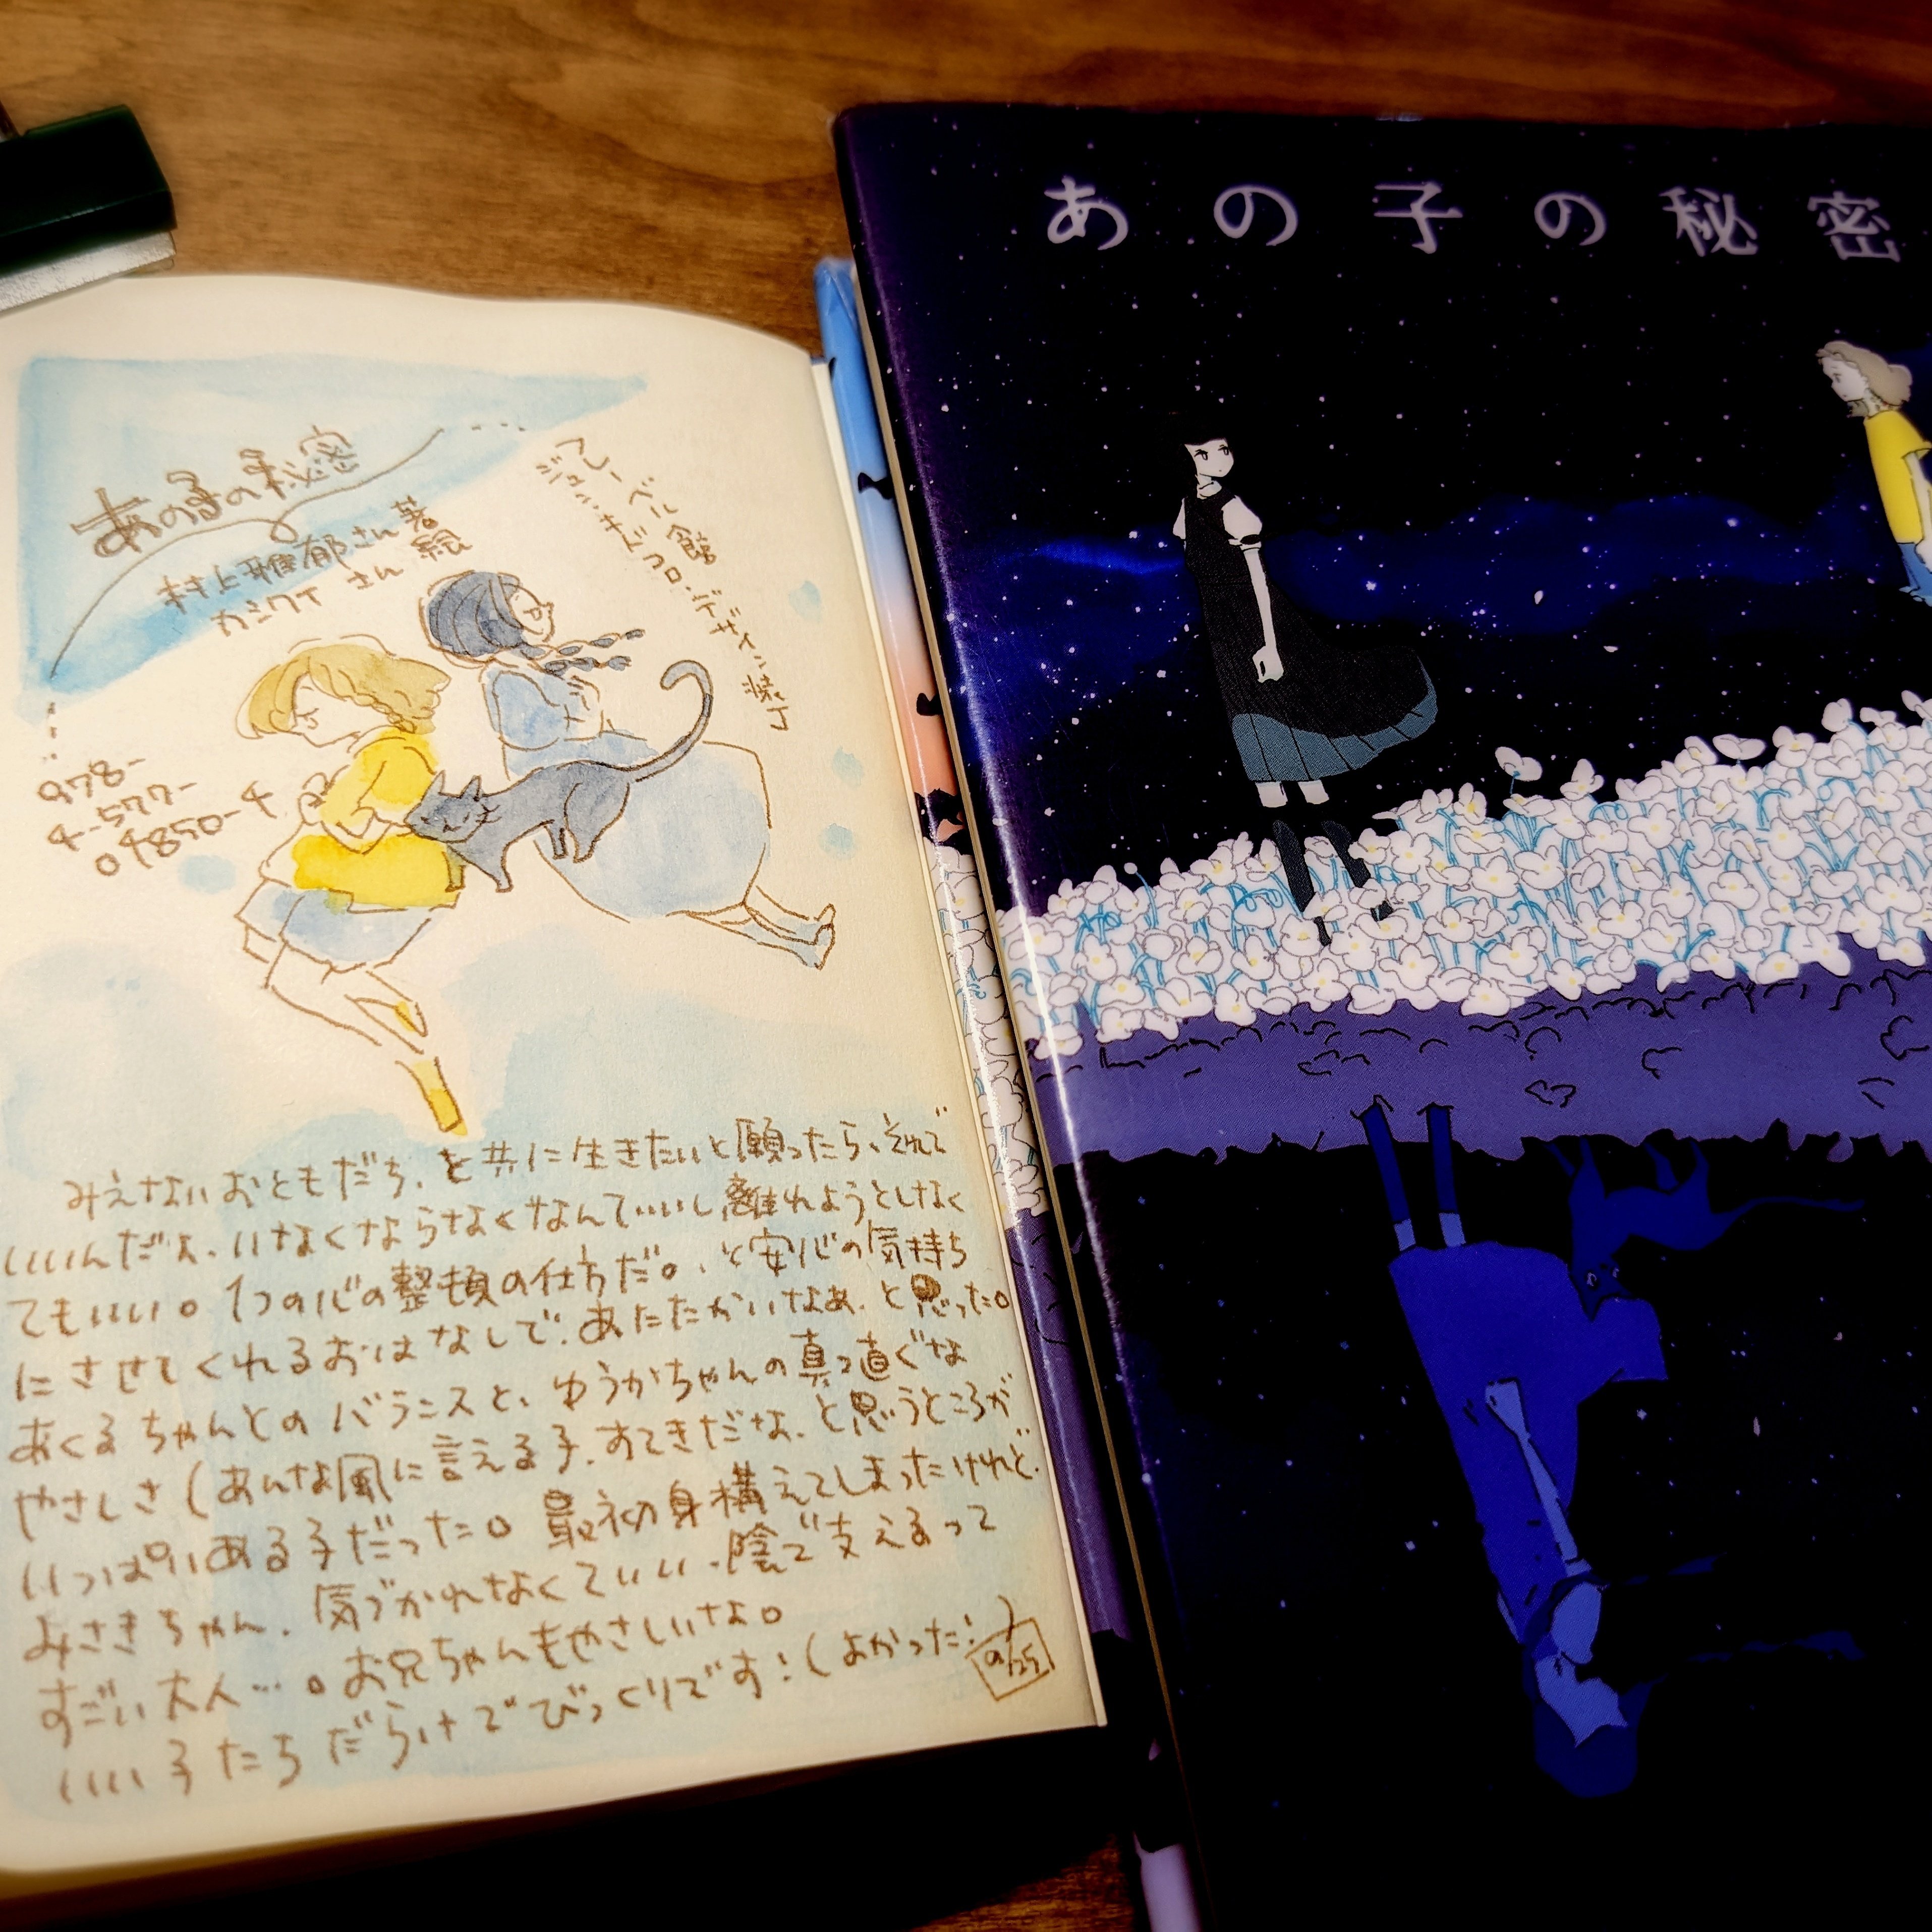 あの子の秘密
村上雅郁さん著
カシワイ さん 絵
フレーベル館
978-
4-577-
04850-4
みえないおともだち、と共に生きたいと願ったら、それで
いいんだよ、いなくならなくなんていいし離れようとしなく
てもいい。1つの心の整頓の仕方だ。、と安心の気持ち
にさせてくれるおはなしで、あたたかいなぁ、と思った。
あくるちゃんとのバランスと、ゆうかちゃんの真っ直ぐな
やさしさ(あんな風に言える子、すてきだな、と思うところが
いっぱいある子だった。最初身構えてしまったけれど、
みさきちゃん、気づかれなくていい、陰で支えるって
すごい大人…。お兄ちゃんもやさしいよ。
いい子たちだらけでびっくりです!(よかった!)
9/25
あの子の秘密